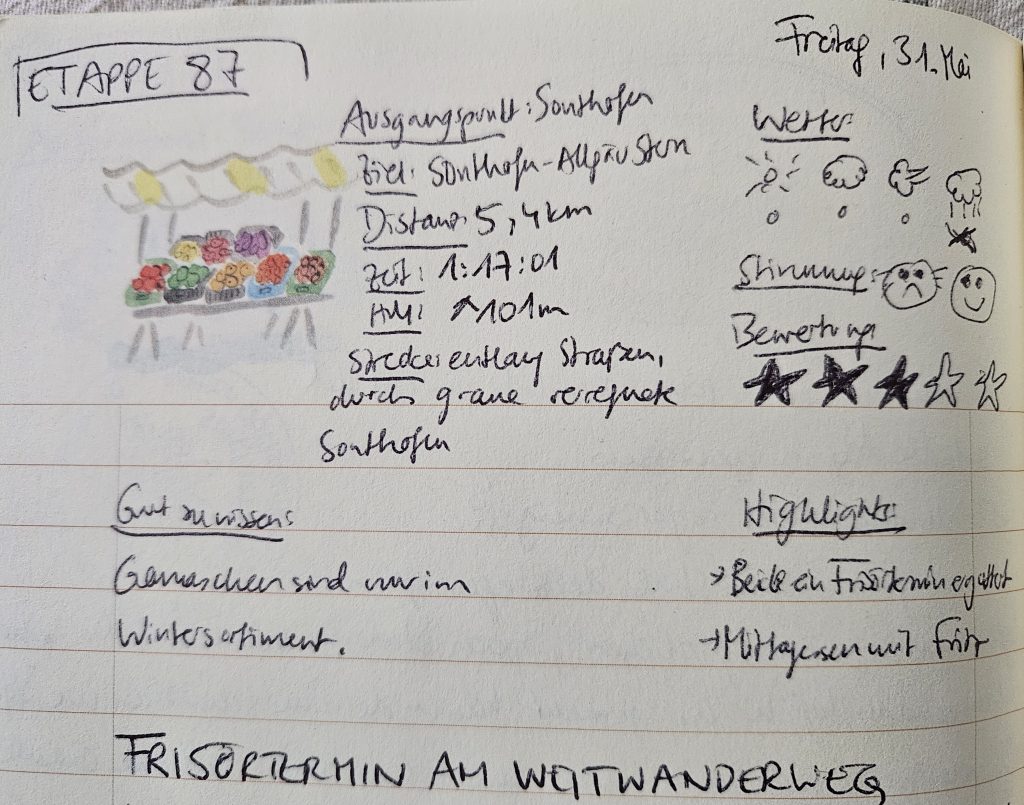 ETAPPE 87
Freitag, 31. Mai
Ausgangspunkt: Sonthofen
Ziel: Sonthofen-Allgäu Stern
Distanz: 5,4km
Zeit: 1:17:01
HM: ↑101m
Strecke: entlang Straßen,
durch graue verregnete
Sonthofen
Wetter:
Stimmung:
Bewertung
Gut zu wissen:
Gamaschen sind nur im
Wintersortiment.
Highlights:
→ Beide ein Frisörtermin ergattert
→ Mittagessen mit Fritz
FRISÖRTERMIN AM WEITWANDERWEG